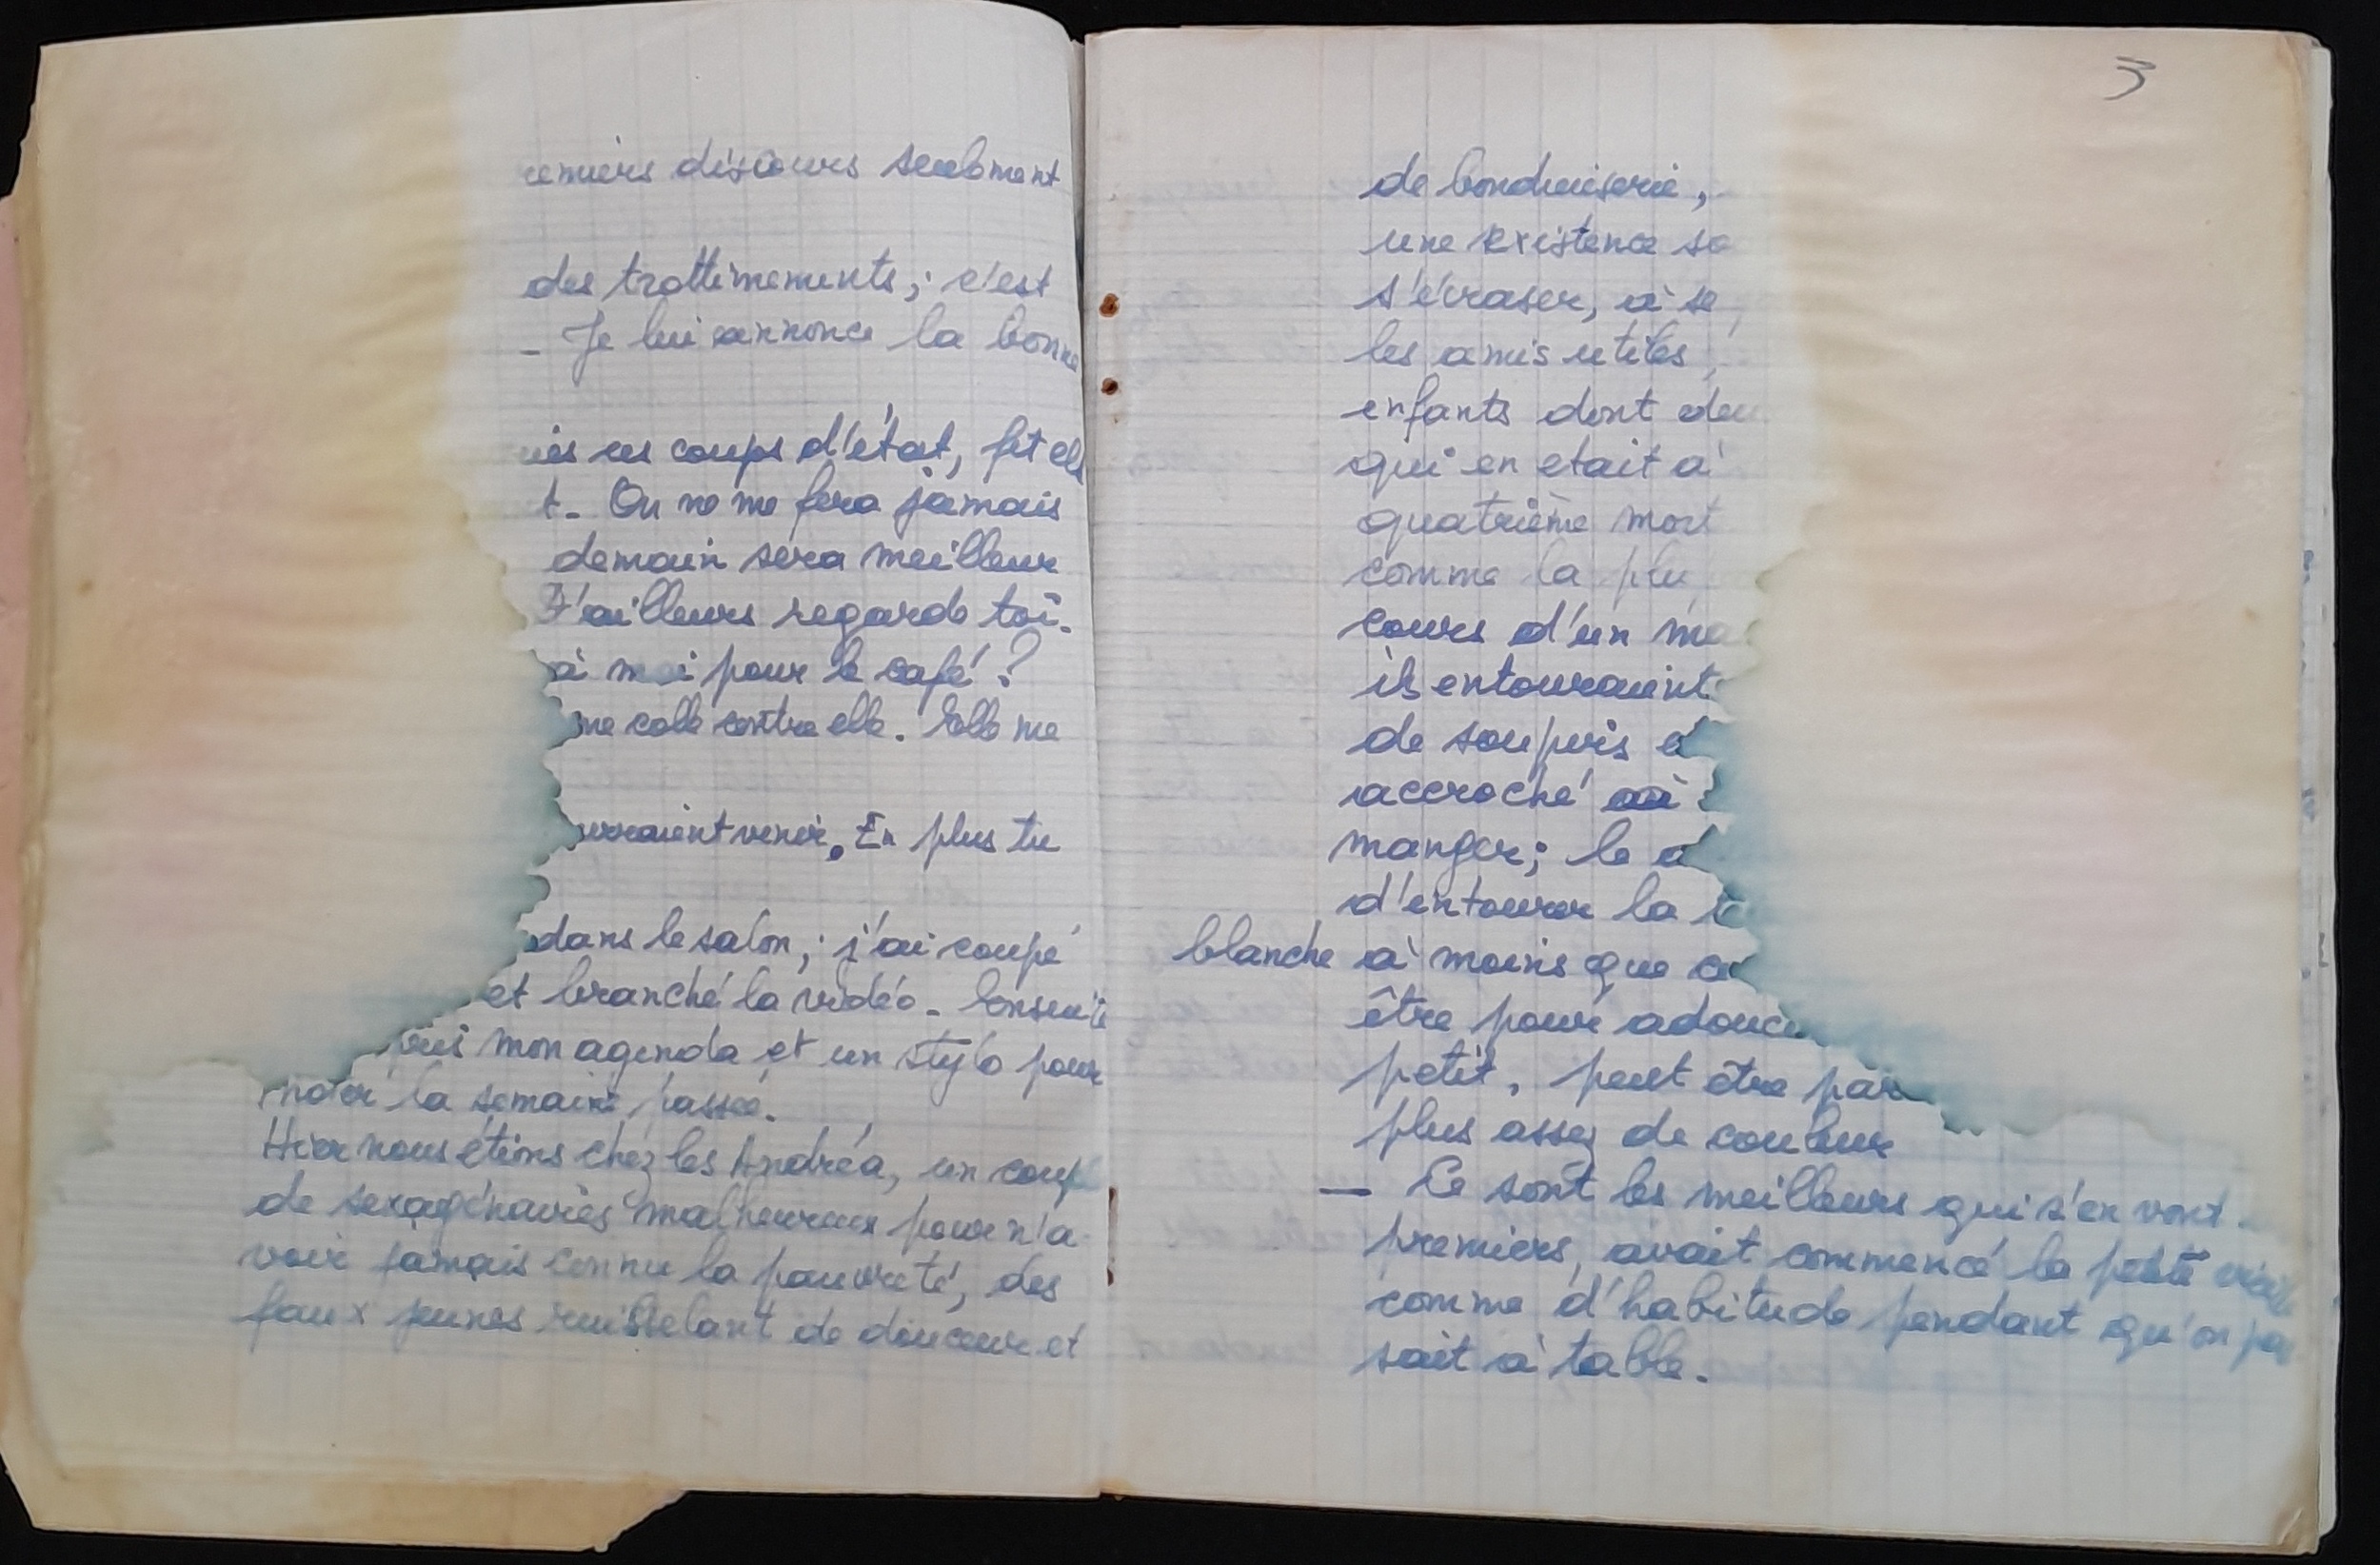 remiers discours seulement
des trottinements ; c'est
- Je lui annonce la bonne
ces coups d'état, fit elle
t. On ne me fera jamais
demain sera meilleur
D'ailleurs regarde toi.
à moi pour le café ?
me colle contre elle. Elle me
venir. En plus tu
dans le salon ; j'ai coupé
et branché la vidéo. Ensuite
pris mon agenda et un stylo pour
noter la semaine passée.
Hier nous étions chez les Andréa, un coupl
de sexagénaires malheureux pour n'a
voir jamais connu la pauvreté, des
faux jeunes ruisselant de douceur et
3
de bondieuserie,
une existence sa
s'écraser, à se
les amis utiles,
enfants dont deu
qui en etait à
quatrième mort
comme la plu
cours d'un ma
ils entouraient
de soupirs e
accroché
manger ; le d
d'entourer la
blanche à moins que ce
être pour adouci
petit, peut être par
plus assez de couleur
— Ce sont les meilleurs qui s'en vont
premiers, avait commencé la petite
comme d'habitude pendant qu'on pa
sait à table.